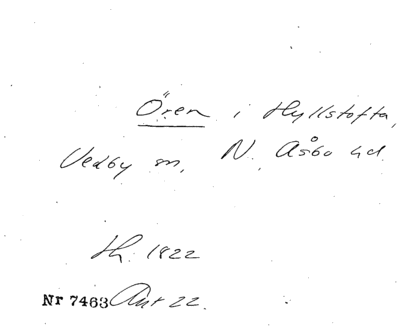 Ören i Hyllstofta,
Vedby sn, N. Åsbo hd
th. 1822
Nr 7463 Ant 22.